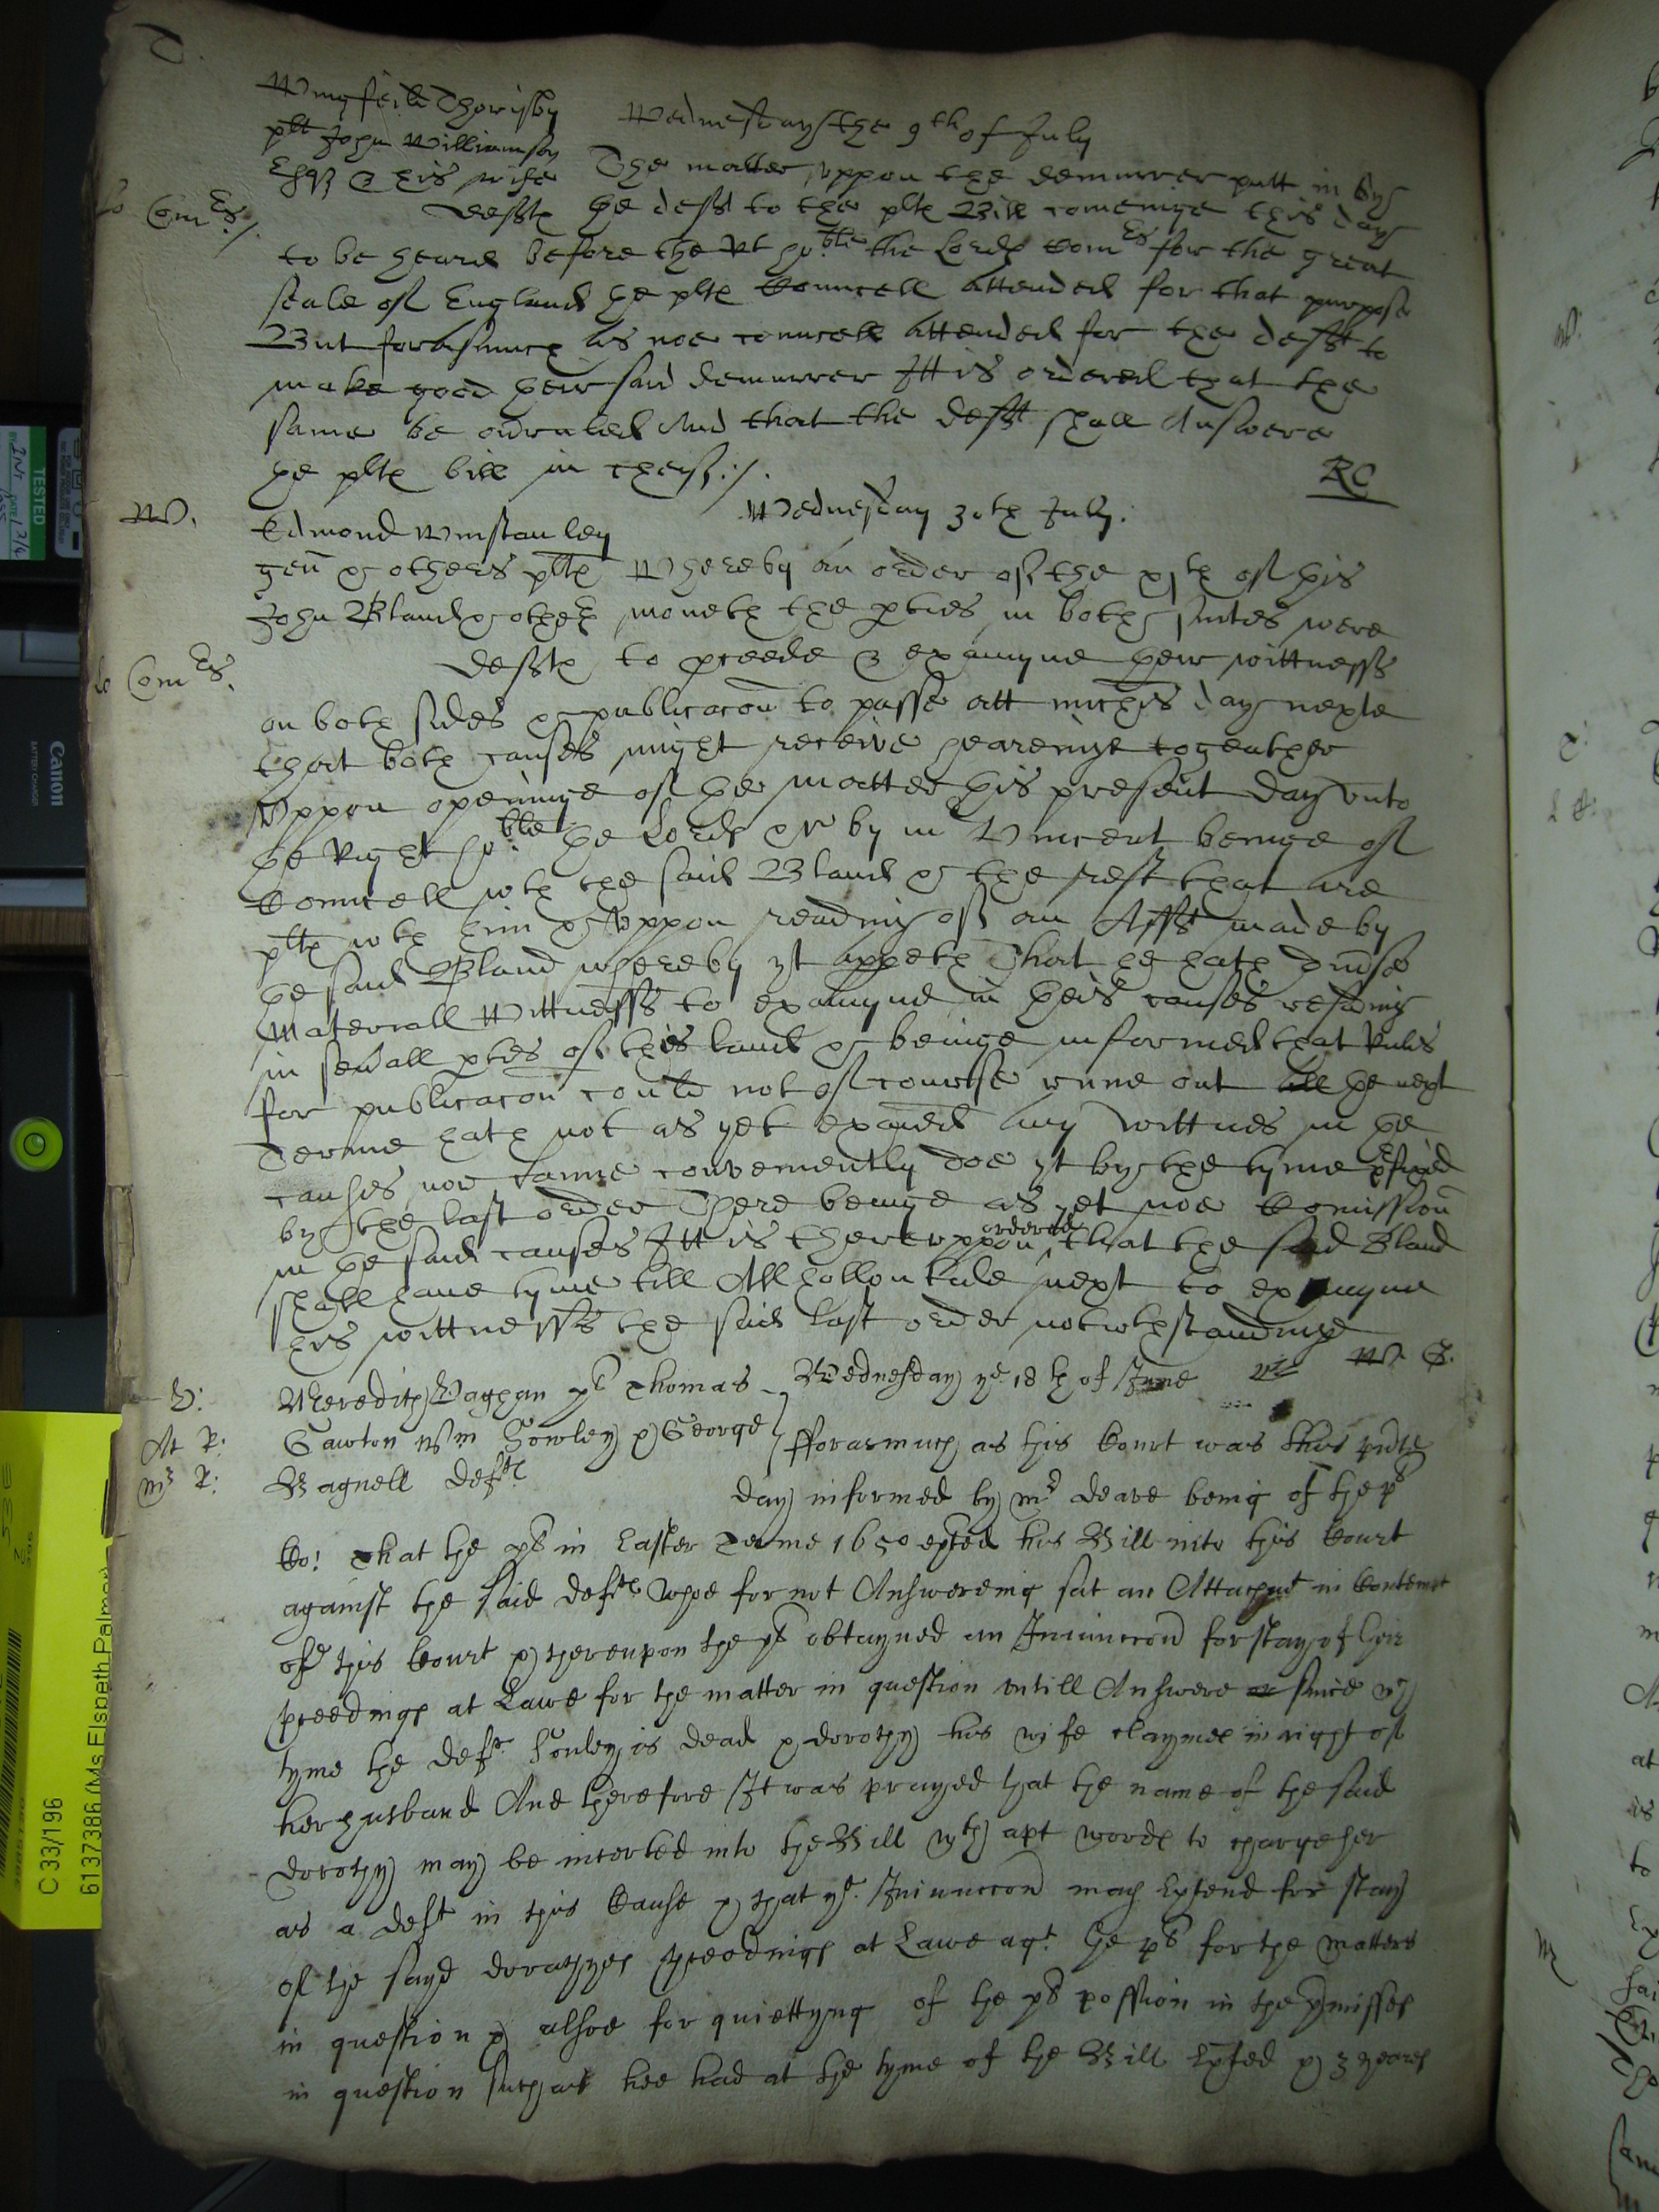 T.
Wingfeild Thorisby
plt John Williamson
Esqr & his wife
defts
Wednesday the 9th of July
Lo Comrs:/.
The matter uppon the demurrer putt in by
the defts to the plts Bill cominge this day
to be heard before the Rt ho:ble the Lords Comrs for the great
seale of England the plts Councell attended for that purpose
But forasmuch as noe councell attended for the defts to
make good their said demurrer Itt is ordered that the
same be overuled And that the defts shall Answere
the plts bill in cheif:/.
RC
W.
Edmond Winstanley
gen & others plts
John Bland & others
defts
Wednesday 30th July.
Lo Comrs.
Whereby an order of the xjth of this
moneth the pties in both suites were
to pceede & examyne their wittnesses
on both sides & publicacon to passe att michis day nexte
that both causes might receive heareinge togeather
Uppon openinge of the matter this present day unto
the Right ho:ble the Lords &c by mr Vincent beinge of
Councell wth the said Bland & the rest that are
plts wth him & Uppon readinge of an Afft made by
the said Bland whereby yt appeth That he hath divse
Materiall Wittnesses to examyne in theis causes resideing
in sevall ptes of this land & beinge informed that Rules
for publicacon could not of course runne out till the next
Terme hath not as yet examed any Wittnes in the
causes nor canne conveniently doe yt by the tyme pfixed
by the last order There beinge as yet noe Comission
in the said causes Itt is thereuppon ordered that the said Bland
shall have tyme till Allhollontide next to examyne
his wittnesses the said last order notwthstandinge
W. G.
V:
At R:
Mr R:
Meredith Vaghan plt Thomas
Gawton Wm Fowley & George
Bagnell Defts
Wednesday ye 18th of June
fforasmuch as this Court was this psnte
day informed by mr deave being of the plts
Co: That the plt in Easter Terme 1650 exhted his Bill into this Court
against the said defts Whoe for not Answereing sat an Attachmt in Contempt
of this Court & thereupon the plt obtayned an Iniunccon for stay of their
pceedings at Lawe for the matter in question untill Answere since wch
tyme the deft Fouley is dead & dorothy his wife claymes in right of
her husband And therefore It was prayed that the name of the said
dorothy may be incerted into the Bill wth apt words to charge her
as a deft in this Cause & that ye Iniunccon may Extend for stay
of the sayd dorathyes pceedings at Lawe agt. the plt for the matters
in question & alsoe for quiettyng of the plts possion in the pmisses
in question such as hee had at the tyme of the Bill Exhted & 3 yeares
TESTED
Canon
BATTERY CHARGER
C 33/196
6137386 (Ms Elspeth Palmer)